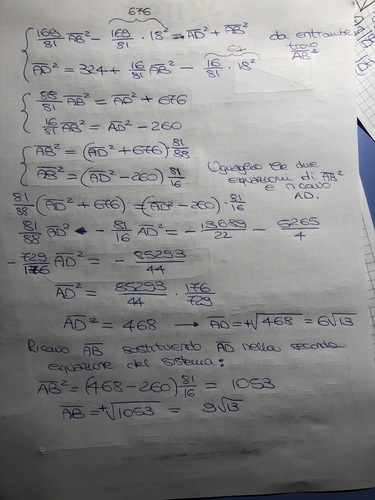 676
169/81 AB² - 169/81 · 18² = AD² + AB² da entrambe
trovo
64
AD² = 324 + 16/81 AB² - 16/81 · 18² AB²
88/81 AB² = AD² + 676
16/81 AB² = AD² - 260
AB² = (AD² + 676) 81/88
AB² = (AD² - 260) 81/16 Uguaglio le due
equazioni di AB²
e ricavo
AD.
81/88 · (AD² + 676) = (AD² - 260) · 81/16
81/88 AD² - 81/16 AD² = - 13689/22 - 5265/4
- 729/176 AD² = - 85293/44
AD² = 85293/44 · 176/729
AD² = 468 → AD = +√468 = 6√13
Ricavo AB sostituendo AD nella seconda
equazione del sistema:
AB² = (468 - 260) 81/16 = 1053
AB = +√1053 = 9√13